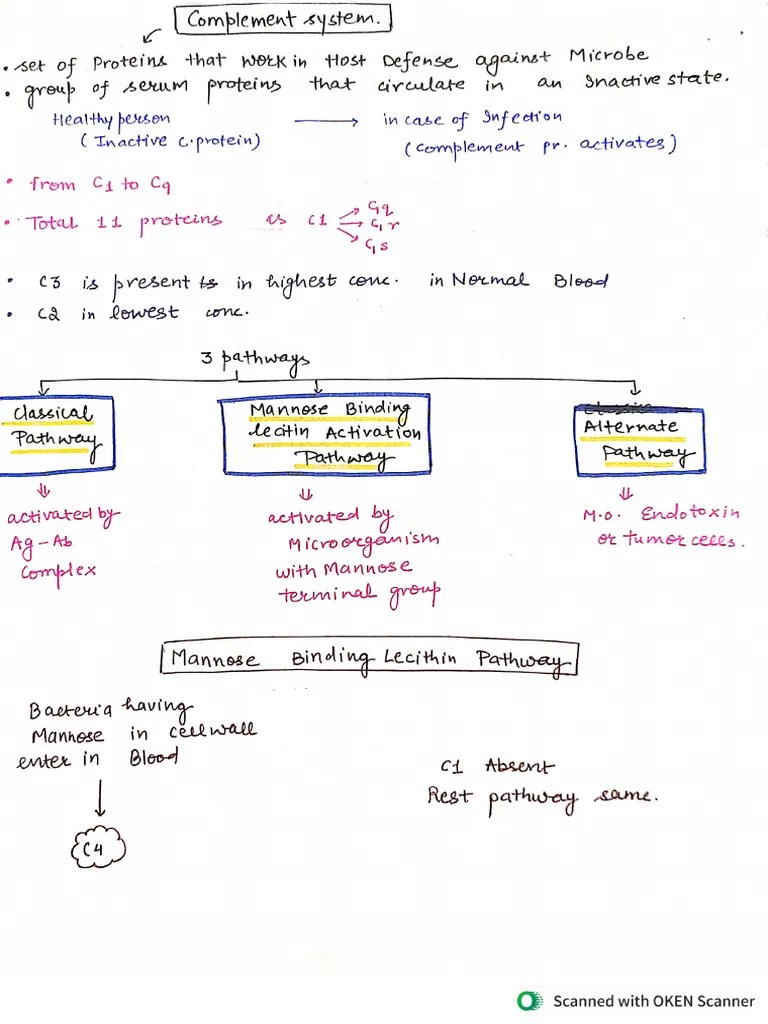 Complement system.
• set of Proteins that work in Host Defense against Microbe
• group of serum proteins that circulate in an Inactive state.
Healthy person → in case of Infection
(Inactive c.protein) (complement pr. activates)
• from C1 to C9
• Total 11 proteins as C1 → C1q
C1r
C1s
• C3 is present is in highest conc. in Normal Blood
• C2 in lowest conc.
3 pathways
Classical
Pathway
Mannose Binding
lecitin Activation
Pathway
Alternate
Pathway
activated by
Ag-Ab
Complex
activated by
Microorganism
with Mannose
terminal group
M.O. Endotoxin
or tumor cells.
Mannose Binding Lecithin Pathway
Bacteria having
Mannose in cell wall
enter in Blood
C4
C1 Absent
Rest pathway same.
Scanned with OKEN Scanner